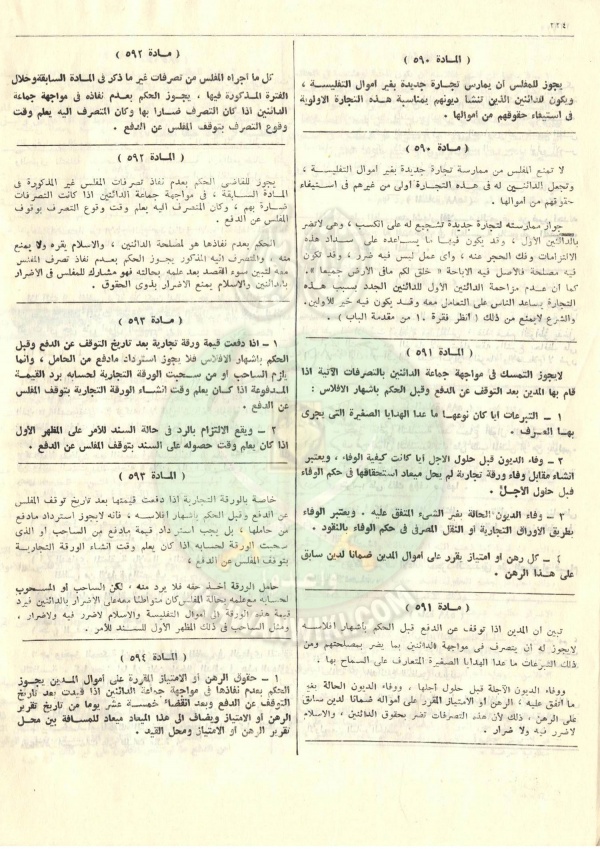 ٢٢٤
( المادة ٥٩٠ )
يجوز للمفلس أن يمارس تجارة جديدة بغير أموال التفليسة ،
ويكون للدائنين الذين تنشأ ديونهم بمناسبة هذه التجارة الأولوية
في استيفاء حقوقهم من أموالها .
( مادة ٥٩٠ )
لا تمنع المفلس من ممارسة تجارة جديدة بغير أموال التفليسة ،
وتجعل الدائنين له في هذه التجارة أولى من غيرهم في استيفاء
حقوقهم من أموالها .
جواز ممارسته لتجارة جديدة تشجيع له على الكسب ، وهي لاتضر
بالدائنين الأول ، وقد يكون فيها ما يساعده على سداد هذه
الالتزامات وفك الحجر عنه ، وأي عمل ليس فيه ضرر ، وقد تكون
فيه مصلحة فالأصل فيه الإباحة « خلق لكم مافي الأرض جميعا » .
كما أن عدم مزاحمة الدائنين الأول للدائنين الجدد بسبب هذه
التجارة يساعد الناس على التعامل معه وقد يكون فيه خير للأولين.
والشرع لايمنع من ذلك ( أنظر فقرة ١٠ من مقدمة الباب ) .
( المادة ٥٩١ )
لايجوز التمسك في مواجهة جماعة الدائنين بالتصرفات الآتية اذا
قام بها المدين بعد التوقف عن الدفع وقبل الحكم باشهار الافلاس :
١ – التبرعات أيا كان نوعها ما عدا الهدايا الصغيرة التي يجرى
بها العرف .
٢ – وفاء الديون قبل حلول الأجل أيا كانت كيفية الوفاء ، ويعتبر
انشاء مقابل وفاء ورقة تجارية لم يحل ميعاد استحقاقها في حكم الوفاء
قبل حلول الأجل .
٣ – وفاء الديون الحالة بغير الشيء المتفق عليه . ويعتبر الوفاء
بطريق الأوراق التجارية أو النقل المصرفي في حكم الوفاء بالنقود .
٤ – كل رهن أو امتياز يقرر على أموال المدين ضمانا لدين سابق
على هذا الرهن .
( مادة ٥٩١ )
تبين أن المدين اذا توقف عن الدفع قبل الحكم بإشهار افلاسه
لايجوز له أن يتصرف في مواجهة الدائنين بما يضر بمصلحتهم ومن
ذلك التبرعات ما عدا الهدايا الصغيرة المتعارف على السماح بها .
ووفاء الديون الآجلة قبل حلول أجلها ، ووفاء الديون الحالة بغير
ما اتفق عليه ، الرهن أو الامتياز المقرر على أمواله ضمانا لدين سابق
على الرهن ، ذلك لأن هذه التصرفات تضر بحقوق الدائنين ، والاسلام
لاضرر فيه ولا ضرار .
( مادة ٥٩٢ )
كل ما أجراه المفلس من تصرفات غير ما ذكر في المادة السابقة وخلال
الفترة المذكورة فيها ، يجوز الحكم بعدم نفاذه في مواجهة جماعة
الدائنين اذا كان التصرف ضارا بها وكان المتصرف اليه يعلم وقت
وقوع التصرف بتوقف المفلس عن الدفع .
( المادة ٥٩٢ )
يجوز للقاضي الحكم بعدم نفاذ تصرفات المفلس غير المذكورة في
المادة السابقة ، في مواجهة جماعة الدائنين اذا كانت التصرفات
ضارة بهم ، وكان المتصرف اليه يعلم وقت وقوع التصرف بوقوف
المفلس عن الدفع .
الحكم بعدم نفاذها هو لمصلحة الدائنين ، والاسلام يقره ولا يمنع
منه ، والمتصرف اليه المذكور يجوز الحكم بعدم نفاذ تصرف المفلس
معه لتبين سوء القصد بعد علمه بحالته فهو مشارك للمفلس في الاضرار
بالدائنين والاسلام يمنع الاضرار بذوى الحقوق .
( مادة ٥٩٣ )
١ – اذا دفعت قيمة ورقة تجارية بعد تاريخ التوقف عن الدفع وقبل
الحكم باشهار الافلاس فلا يجوز استرداد مادفع من الحامل ، وانما
يلزم الساحب أو من سحبت الورقة التجارية لحسابه برد القيمة
المدفوعة اذا كان يعلم وقت انشاء الورقة التجارية بتوقف المفلس
عن الدفع .
٢ – ويقع الالتزام بالرد في حالة السند للأمر على المظهر الأول
اذا كان يعلم وقت حصوله على السند بتوقف المفلس عن الدفع .
( المادة ٥٩٣ )
خاصة بالورقة التجارية اذا دفعت قيمتها بعد تاريخ توقف المفلس
عن الدفع وقبل الحكم بإشهار افلاسه ، فانه لايجوز استرداد مادفع
من حاملها ، بل يجب استرداد قيمة مادفع من الساحب أو الذى
سحبت الورقة لحسابه اذا كان يعلم وقت انشاء الورقة التجارية
بتوقف المفلس عن الدفع ،
حامل الورقة أخذ حقه فلا يرد منه ، لكن الساحب أو المسحوب
لحسابه مع علمه بحالة المفلس كان متواطئا معه على الاضرار بالدائنين فيرد
قيمة هذه الورقة إلى أموال التفليسة والاسلام لاضرر فيه ولاضرار .
ومثل الساحب في ذلك المظهر الأول للسند للأمر .
( المادة ٥٩٤ )
١ – حقوق الرهن أو الامتياز المقررة على أموال المدين يجوز
الحكم بعدم نفاذها في مواجهة جماعة الدائنين اذا قيدت بعد تاريخ
التوقف عن الدفع وبعد انقضاء خمسة عشر يوما من تاريخ تقرير
الرهن أو الامتياز ويضاف الى هذا الميعاد ميعاد للمسافة بين محل
تقرير الرهن أو الامتياز ومحل القيد .